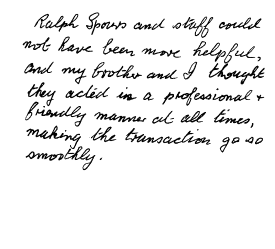 Ralph Spours and staff could
not have been more helpful,
and my brother and I thought
they acted in a professional +
friendly manner at all times,
making the transaction go so
smoothly.